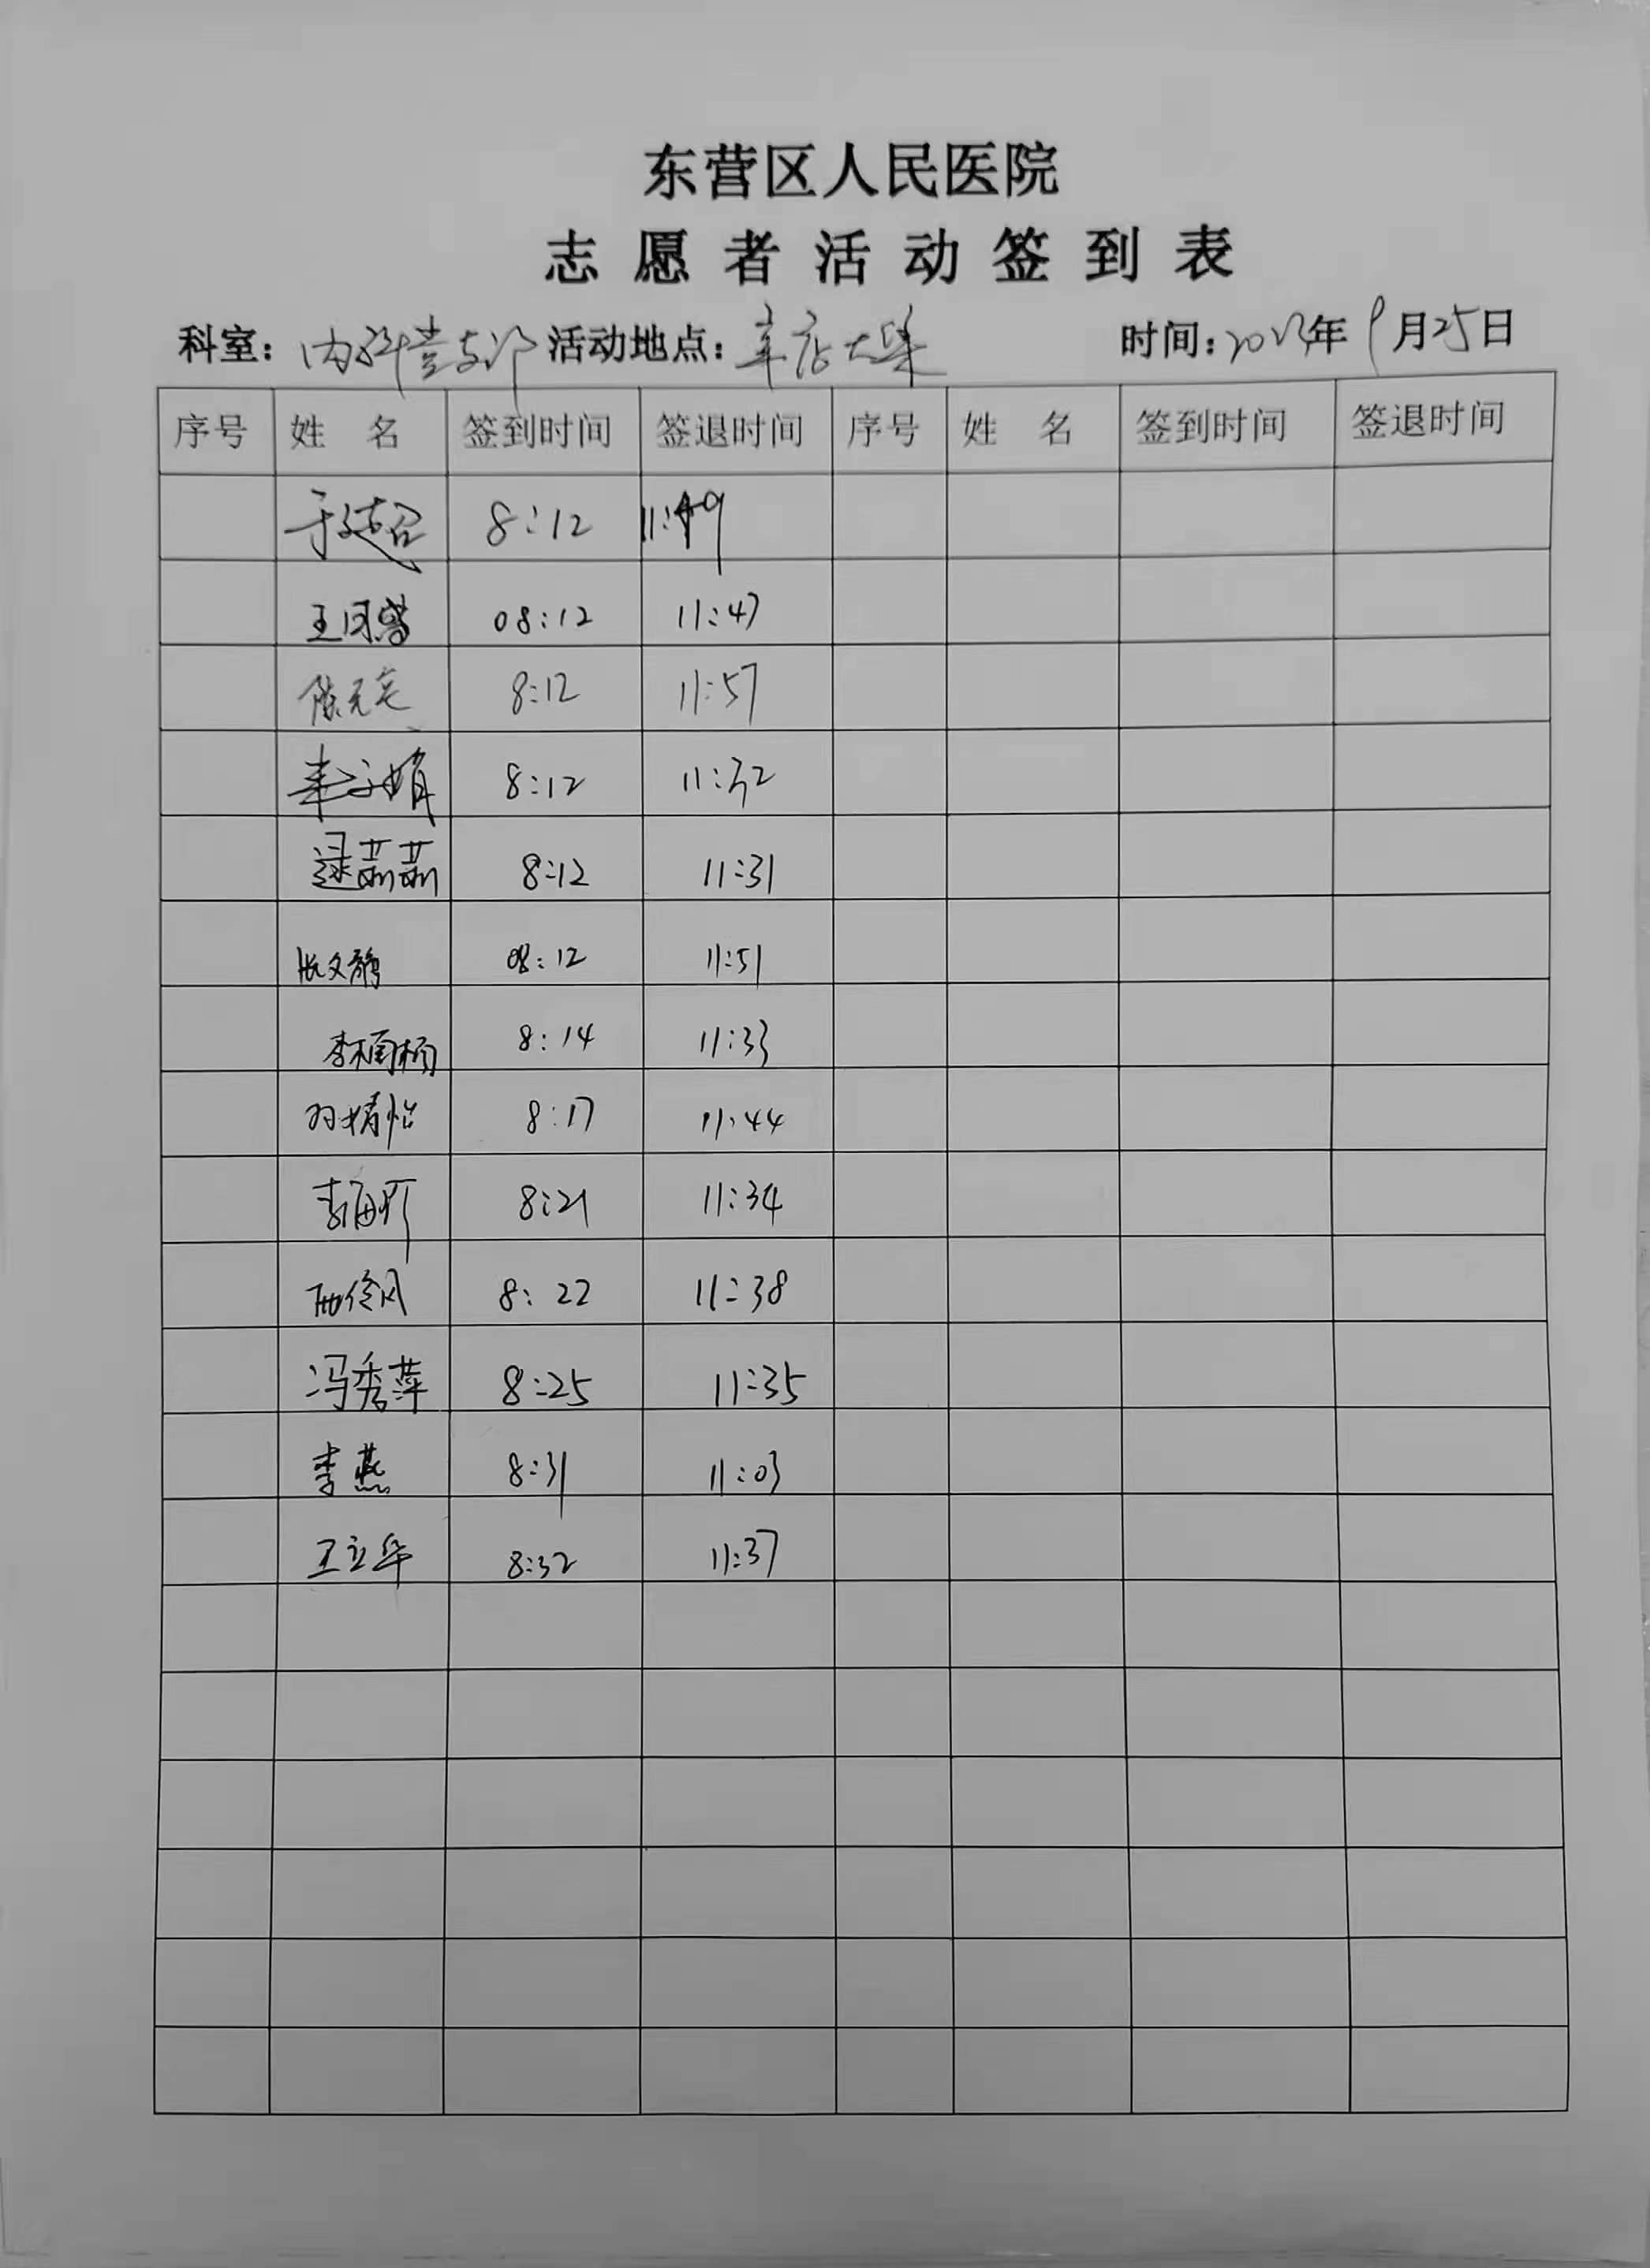 东营区人民医院
志愿者活动签到表
科室：内科党支部 活动地点：辛店大集 时间：2023年9月25日
序号 姓 名 签到时间 签退时间 序号 姓 名 签到时间 签退时间
于延召 8:12 11:49
08:12 11:47
8:12 11:57
8:12 11:32
逯茹茹 8:12 11:31
张文静 08:12 11:51
李楠楠 8:14 11:33
孙婧怡 8:17 11:44
8:21 11:34
8:22 11:38
冯秀萍 8:25 11:35
李燕 8:31 11:03
王立华 8:32 11:37